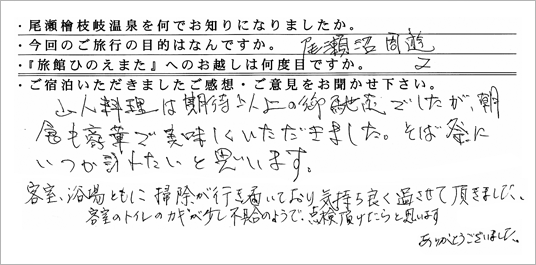 ・尾瀬檜枝岐温泉を何でお知りになりましたか。
・今回のご旅行の目的はなんですか。 尾瀬沼周遊
・『旅館ひのえまた』へのお越しは何度目ですか。 2
・ご宿泊いただきましたご感想・ご意見をお聞かせ下さい。
山人料理は期待以上の御馳走でしたが、朝
食も豪華で美味しくいただきました。そば祭に
いつか訪れたいと思います。
客室、浴場ともに掃除が行き届いており気持ち良く過させて頂きました。
客室のトイレのカギが少し不具合のようで、点検頂けたらと思います
ありがとうございました。